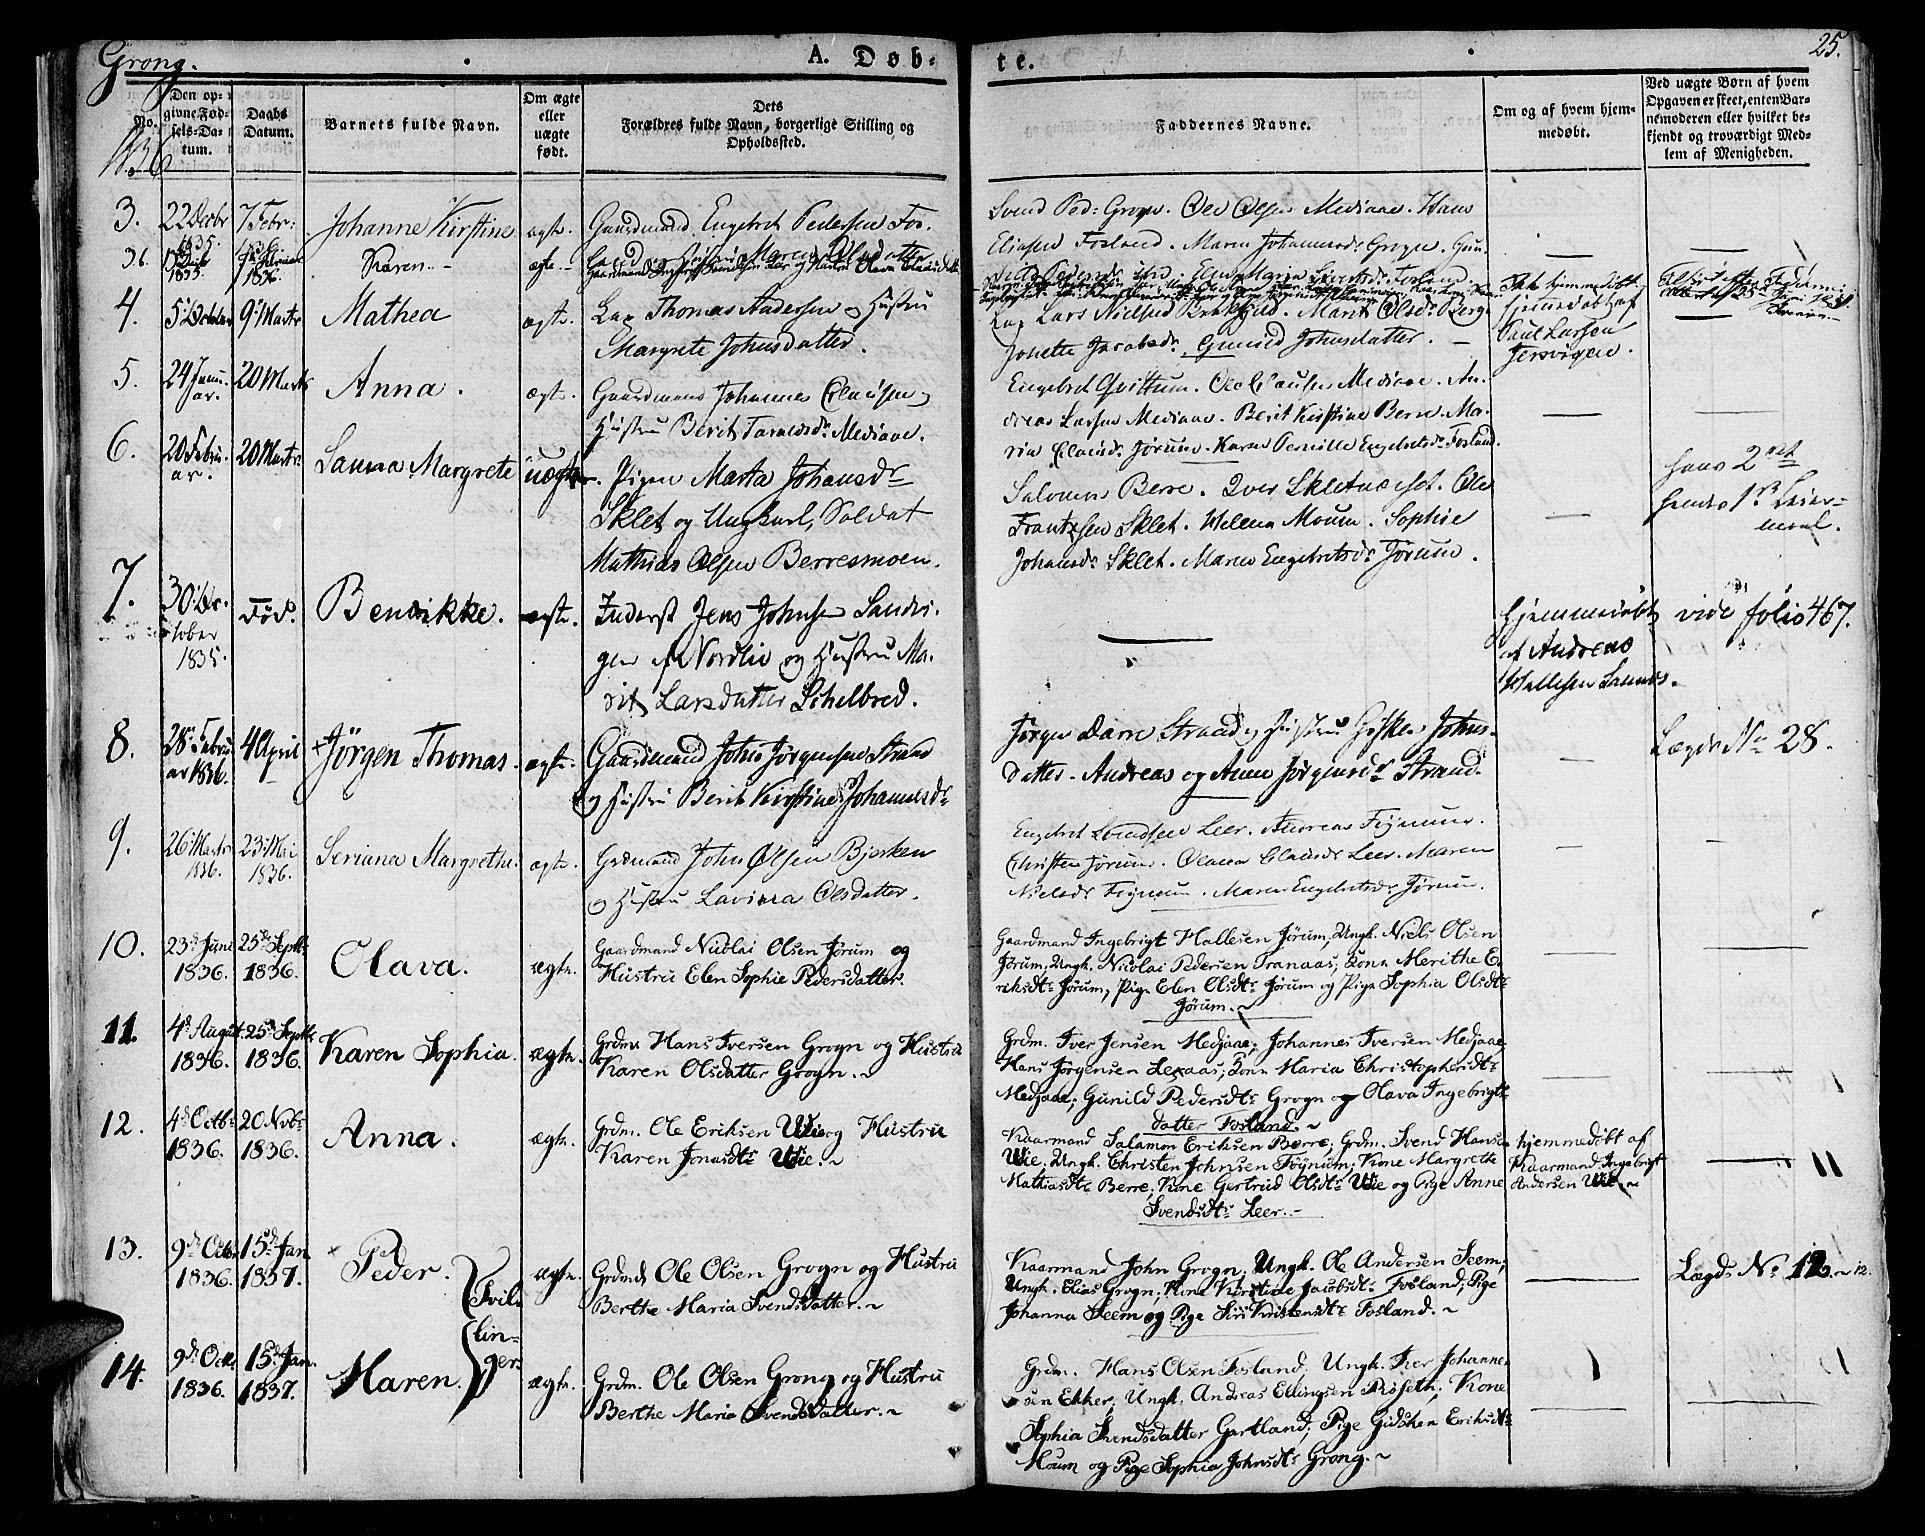 Grong.
A. Døb-
te.
25.
No.
Den opgivne Fødsels-Datum.
Daabs Datum.
Barnets fulde Navn.
Om ægte eller uægte født.
Dets Forældres fulde Navn, borgerlige Stilling og Opholdssted.
Faddernes Navne.
Om og af hvem hjemmedøbt.
Ved uægte Børn af hvem Opgaven er skeet, enten Barnemoderen eller hvilket bekjendt og troværdigt Medlem af Menigheden.
1836
3. 22 Decbr 1835. 7 Febr: 1836. Johanne Kirstine ægte. Gaardmand Engebret Pedersen Fos-
land og Hustru Maren Olsdatter
Svend Ped: Grogn. Ole Olsen Mediaae. Hans
Eliasen Fosland. Maren Johannesdr Grogn. Gun-
3b. 1835 1836 Karen ægte
4. 5 October 9 Martz Mathea ægte. Lap Thomas Andersen og Hustru
Margrete Johnsdatter.
Lap Lars Nielsen. Marit Olsdr Berg.
Jonetta Jacobsdr. Gunild Johnsdatter.
Ikke hjemmedøbt
hjemmedøbt af
Paul Larsen
Tersvigen.
5. 24 Januar. 20 Martz Anna. ægte. Gaardmand Johannes Clausen og
Hustru Berit Taraldsdr Mediaae.
Engebret Qvittum. Ole Clausen Mediaae. An-
dreas Larsen Mediaae. Berit Kirstine Berre. Ma-
ria Clausdr Jørum. Karen Pernille Engebretsdr Fosland.
6. 20 Februar. 20 Martz Laura Margrete uægte. Pigen Marta Johansdr
Sklet og Ungkarl, Soldat
Mathias Olsen Berresmoen.
Salomon Berre. Iver Skletnæsset. Ole
Frantzsen Sklet. Helena Moum. Sophie
Johansdr Sklet. Maren Engebretsdr Jørum.
hans 2det
hendes 1ste Leier-
maal.
7. 30 October 1835. Død. Benedikke. ægte. Inderst Jens Johnsen Sandvi-
gen af Nordlie og Hustru Ma-
rit Larsdatter Schelbred.
hjemmedøbt
af Andreas
Hallesen Sandvs.
vide folio 467.
8. 28 Februar 1836. 4 April Jørgen Thomas. ægte. Gaardmand John Jørgensen Strand
og Hustru Berit Kirstine Johannesdr
Jørgen Darre Strand og Hustru Giske Johns-
datter. Andreas og Anne Jørgensdr Strand.
Lægds No 28.
9. 26 Martz 1836. 23 Mai 1836. Seriana Margrethe. ægte. Grdmand John Olsen Bjerken
og Hustru Lavina Olsdatter.
Engebret Svendsen Leer. Andreas Fignum.
Christen Jørum. Olava Clausdr Leer. Maren
Nielsdr Fignum. Maren Engebretsdr Jørum.
10. 23d Juni 1836. 25de Septbr 1836. Olava. ægte. Gaardmand Nicolai Olsen Jørum og
Hustru Elen Sophie Pedersdatter.
Gaardmand Ingebrigt Hallesen Jørum, Ungk. Niels Olsen
Jørum, Ungk. Nicolai Pedersen Tranaas; Kone Merithe E-
riksdtr Jørum, Pige Elen Olsdtr Jørum og Pige Sophia Olsdtr
Jørum.
11. 4d August 1836. 25de Septbr 1836. Karen Sophia. ægte. Grdm. Hans Iversen Grogn og Hustru
Karen Olsdatter Grogn.
Grdm. Iver Jensen Medjaae; Johannes Iversen Medjaae,
Hans Jørgensen Lexaas; Kone Maria Christophersdtr
Medjaae; Gunild Pedersdtr Grogn og Olava Ingebrigts-
datter Fosland.
12. 4d Octbr 1836. 20 Nvbr 1836. Anna. ægte. Grdm. Ole Eriksen Wie og Hustru
Karen Jonasdtr Wie.
Kaarmand Salamon Eriksen Berre, Grdm. Svend Hansen
Wie; Ungk. Christen Johnsen Føynum; Kone Margrethe
Mathiasdtr Berre, Kone Gertrud Olsdtr Wie og Pige Anne
Svendsdtr Leer.
hjemmedøbt af
Kaarmand Ingebrigt
Andersen Wie
13. 9d Octbr 1836. 15d Jan. 1837. Peder. Tvil- ægte. Grdmd Ole Olsen Grogn og Hustru
Berthe Maria Svendsdatter.
Kaarmand John Grogn, Ungk. Ole Andersen Seem;
Ungk. Elias Grogn; Kone Kirstine Jacobsdtr Fosland; Pige
Johanna Seem og Pige Siri Kristensdtr Fosland.
Lægds No 12. 12.
lin-
14. 9d Octbr 1836. 15d Jan. 1837. Maren. ger ægte. Grdm. Ole Olsen Grong og Hustru
Berthe Maria Svendsdatter.
Grdm. Hans Olsen Fosland, Ungk. Iver Johanne-
sen Ekker; Ungk. Andreas Ellingsen Røseth; Kone
Sophia Svendsdatter Gartland; Pige Gidsken Eriksdtr
Moum og Pige Sophia Johnsdtr Grong.